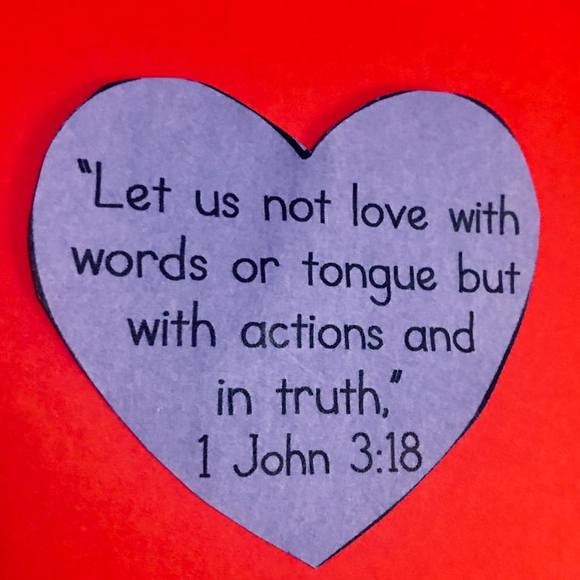 "Let us not love with
words or tongue but
with actions and
in truth,"
1 John 3:18